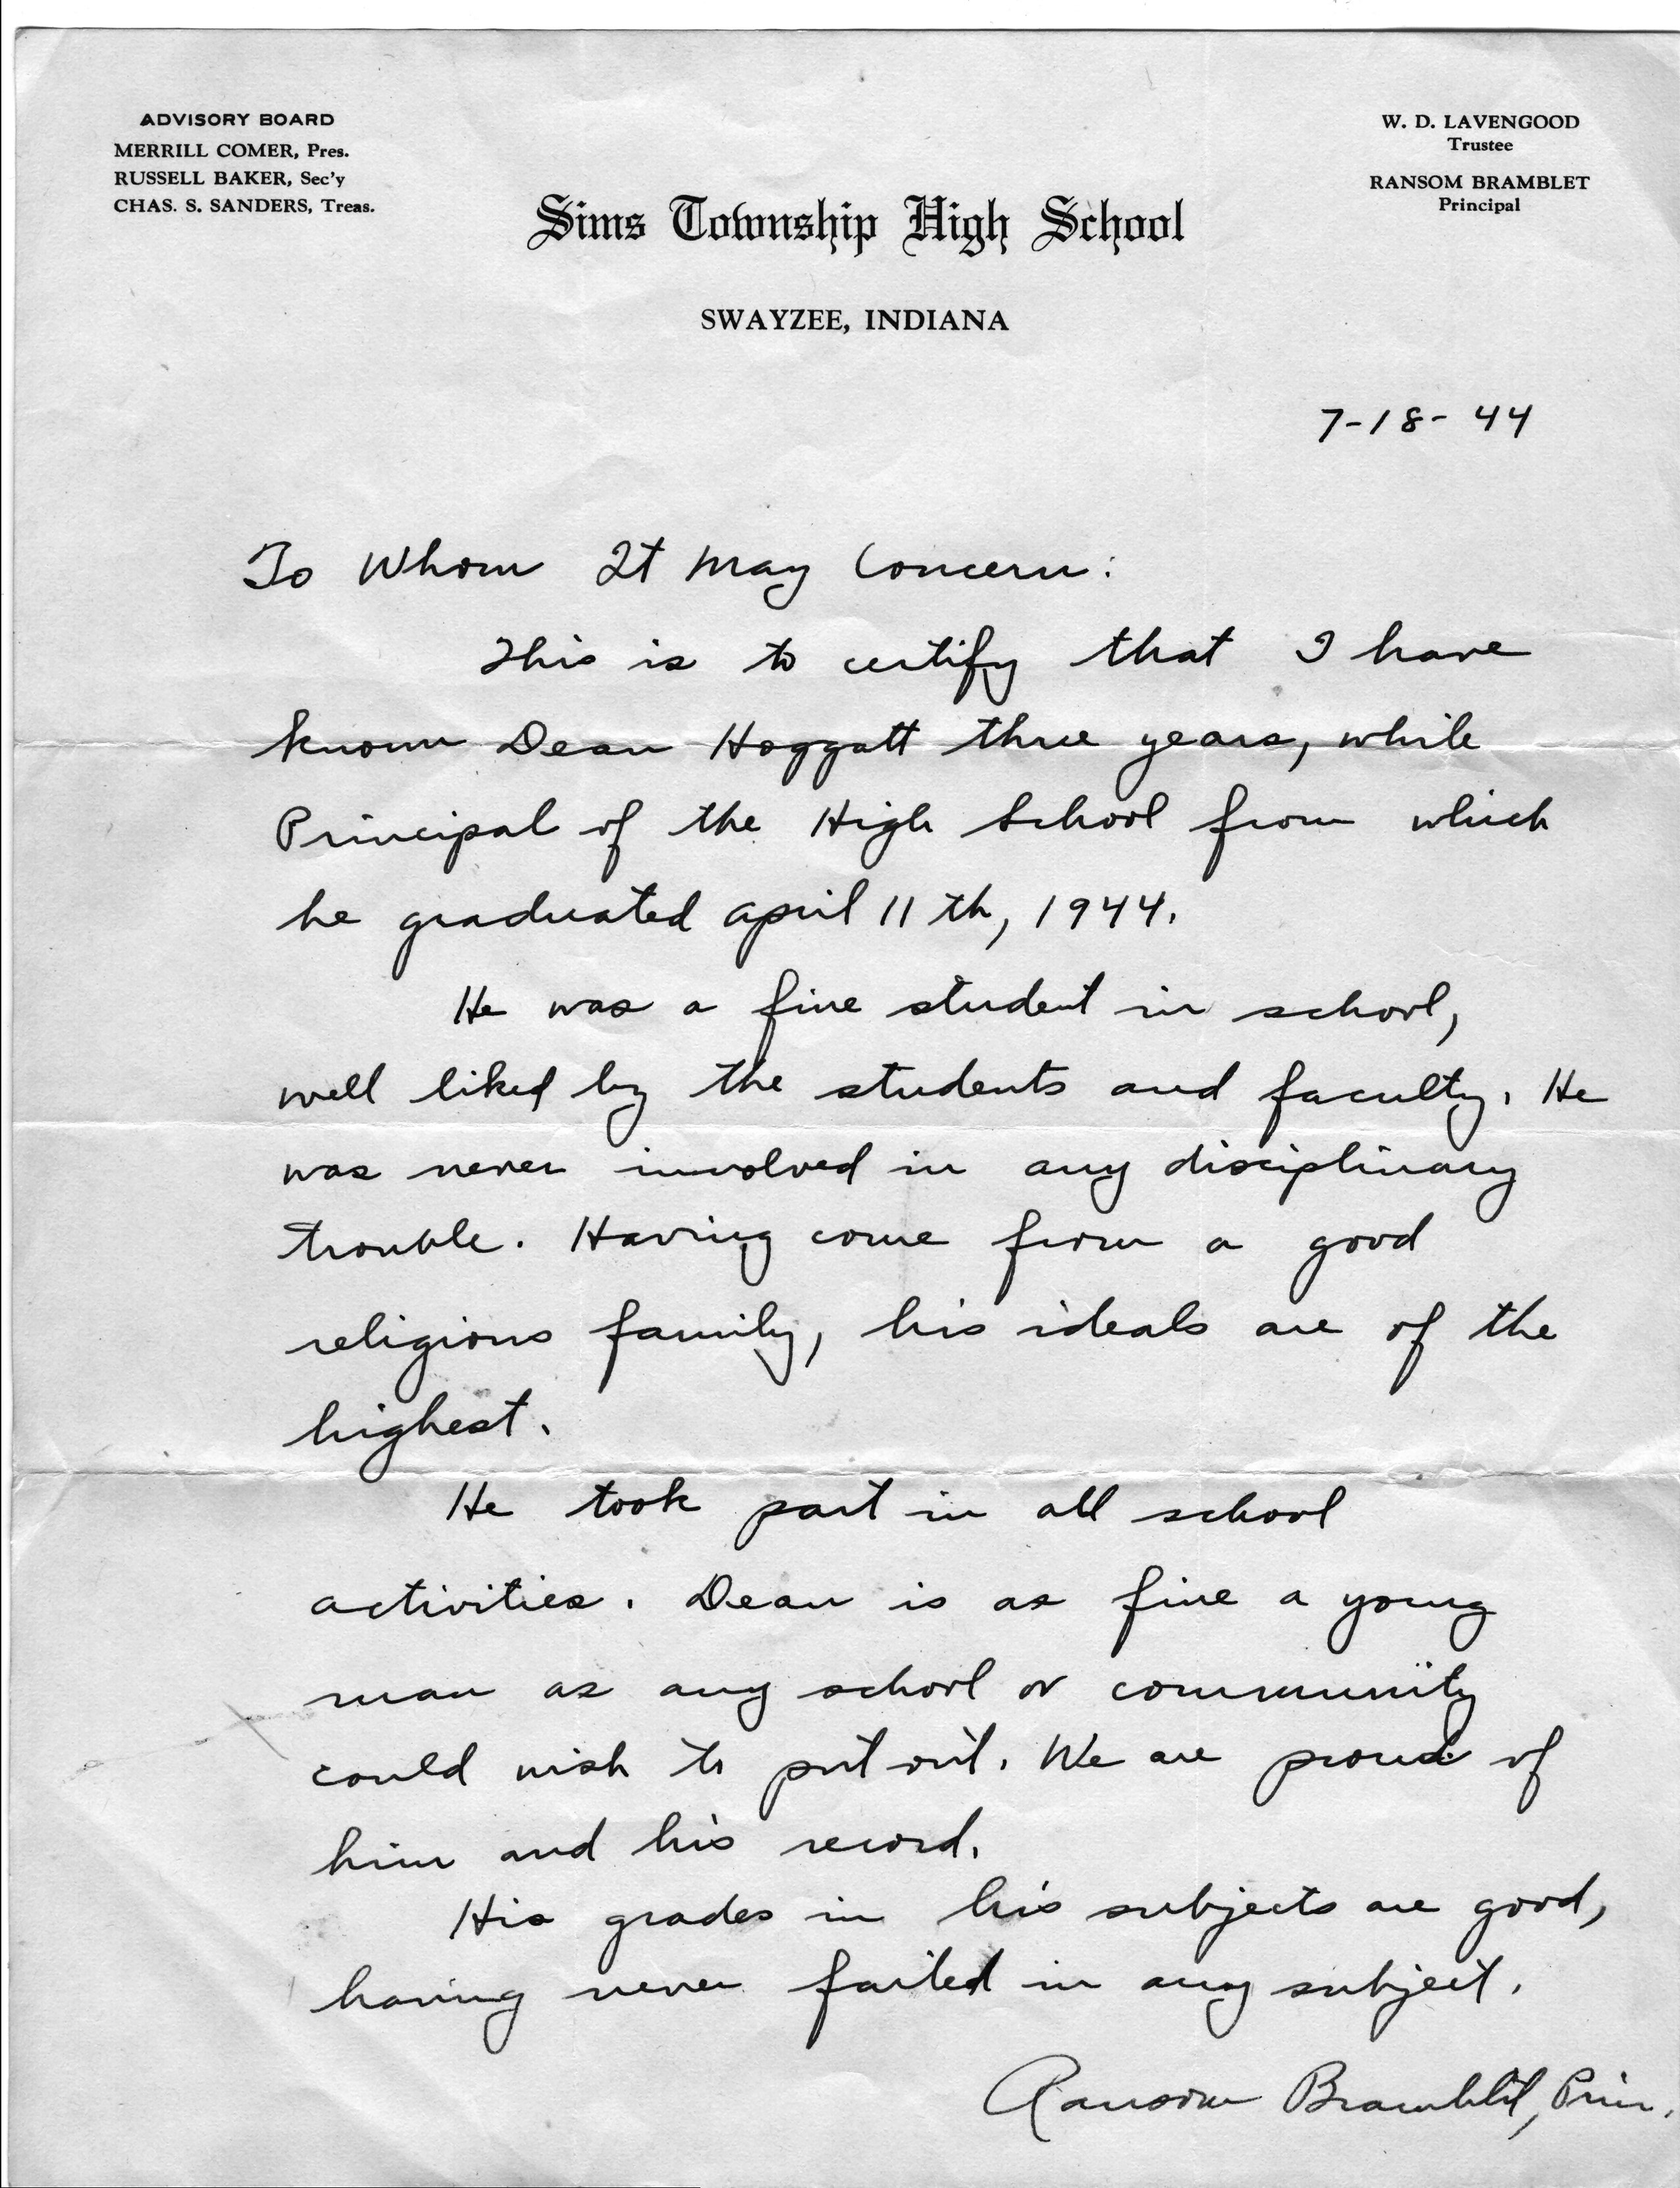 ADVISORY BOARD
MERRILL COMER, Pres.
RUSSELL BAKER, Sec'y
CHAS. S. SANDERS, Treas.
W. D. LAVENGOOD
Trustee
RANSOM BRAMBLET
Principal
Sims Township High School
SWAYZEE, INDIANA
7-18-44
To Whom It May Concern:
This is to certify that I have
known Dean Hoggatt three years, while
Principal of the High School from which
he graduated April 11th, 1944.
He was a fine student in school,
well liked by the students and faculty. He
was never involved in any disciplinary
trouble. Having come from a good
religious family, his ideals are of the
highest.
He took part in all school
activities. Dean is as fine a young
man as any school or community
could wish to put out. We are proud of
him and his record.
His grades in his subjects are good,
having never failed in any subject.
Ransom Bramblet, Prin.